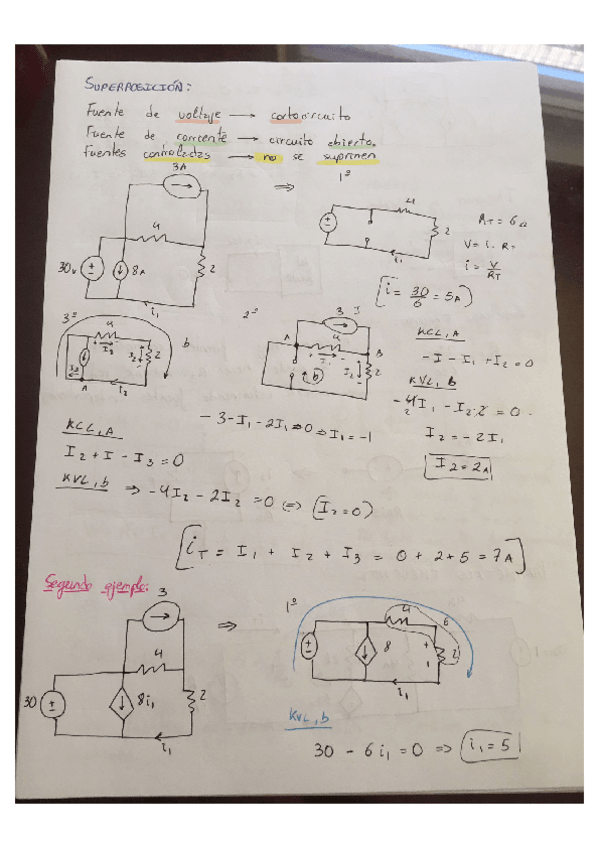 SUPERPOSICIÓN:
Fuente de voltaje → cortocircuito
Fuente de corriente → circuito abierto.
Fuentes controladas → no se suprimen
3A
⇒
1º
4
2
30v
8A
4
2
i₁
2
i₁
RT = 6Ω
V = i · RT
i = V/RT
i = 30/6 = 5A
3º
4
I₃
I₂
2
b
A
I₂
2º
3 I
A
4
B
I₁
I₂
2
b
KCL, A
-I - I₁ + I₂ = 0
KVL, b
-4I₁ - I₂·2 = 0
2
I₂ = -2I₁
I₂ = 2A
- 3 - I₁ - 2I₁ = 0 ⇒ I₁ = -1
KCL, A
I₂ + I - I₃ = 0
KVL, b ⇒ -4I₂ - 2I₂ = 0 ⇔ (I₂ = 0)
iT = I₁ + I₂ + I₃ = 0 + 2 + 5 = 7A
Segundo ejemplo:
3
⇒
1º
4
6
30
8i₁
4
2
i₁
8
2
i₁
KVL, b
30 - 6i₁ = 0 ⇒ i₁ = 5